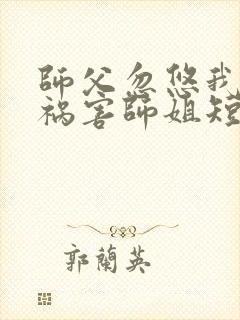 師父忽悠我
禍害師姐短
郭蘭英